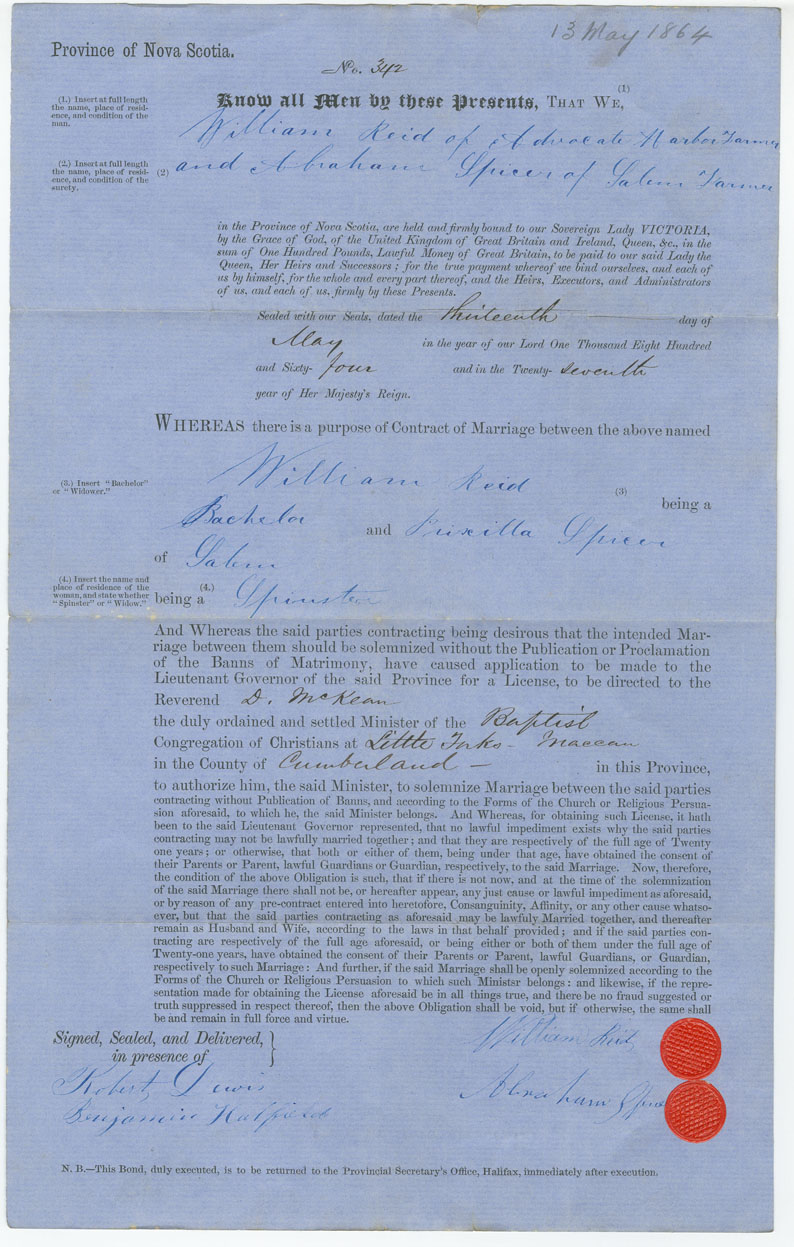 13 May 1864
Province of Nova Scotia.
No. 342
(1.) Insert at full length
the name, place of resid-
ence, and condition of the
man.
(1)
Know all Men by these Presents, THAT WE,
William Reid of Advocate Harbor Farmer
(2.) Insert at full length
the name, place of resid-
ence, and condition of the
surety.
(2) and Abraham Spicer of Salem Farmer
in the Province of Nova Scotia, are held and firmly bound to our Sovereign Lady VICTORIA,
by the Grace of God, of the United Kingdom of Great Britain and Ireland, Queen, &c., in the
sum of One Hundred Pounds, Lawful Money of Great Britain, to be paid to our said Lady the
Queen, Her Heirs and Successors; for the true payment whereof we bind ourselves, and each of
us by himself, for the whole and every part thereof, and the Heirs, Executors, and Administrators
of us, and each of us, firmly by these Presents.
Sealed with our Seals, dated the thirteenth day of
May in the year of our Lord One Thousand Eight Hundred
and Sixty- four and in the Twenty- seventh
year of Her Majesty's Reign.
WHEREAS there is a purpose of Contract of Marriage between the above named
William Reid
(3.) Insert "Bachelor"
or "Widower."
(3)
being a
Bachelor and Priscilla Spicer
of Salem
(4.) Insert the name and
place of residence of the
woman, and state whether
"Spinster" or "Widow."
(4.)
being a Spinster
And Whereas the said parties contracting being desirous that the intended Mar-
riage between them should be solemnized without the Publication or Proclamation
of the Banns of Matrimony, have caused application to be made to the
Lieutenant Governor of the said Province for a License, to be directed to the
Reverend D. McKean
the duly ordained and settled Minister of the Baptist
Congregation of Christians at Little Forks - Maccan
in the County of Cumberland - in this Province,
to authorize him, the said Minister, to solemnize Marriage between the said parties
contracting without Publication of Banns, and according to the Forms of the Church or Religious Persua-
sion aforesaid, to which he, the said Minister belongs. And Whereas, for obtaining such License, it hath
been to the said Lieutenant Governor represented, that no lawful impediment exists why the said parties
contracting may not be lawfully married together; and that they are respectively of the full age of Twenty
one years; or otherwise, that both or either of them, being under that age, have obtained the consent of
their Parents or Parent, lawful Guardians or Guardian, respectively, to the said Marriage. Now, therefore,
the condition of the above Obligation is such, that if there is not now, and at the time of the solemnization
of the said Marriage there shall not be, or hereafter appear, any just cause or lawful impediment as aforesaid,
or by reason of any pre-contract entered into heretofore, Consanguinity, Affinity, or any other cause whatso-
ever, but that the said parties contracting as aforesaid may be lawfuly Married together, and thereafter
remain as Husband and Wife, according to the laws in that behalf provided; and if the said parties con-
tracting are respectively of the full age aforesaid, or being either or both of them under the full age of
Twenty-one years, have obtained the consent of their Parents or Parent, lawful Guardians, or Guardian,
respectively to such Marriage: And further, if the said Marriage shall be openly solemnized according to the
Forms of the Church or Religious Persuasion to which such Ministsr belongs: and likewise, if the repre-
sentation made for obtaining the License aforesaid be in all things true, and there be no fraud suggested or
truth suppressed in respect thereof, then the above Obligation shall be void, but if otherwise, the same shall
be and remain in full force and virtue.
Signed, Sealed, and Delivered,
in presence of
William Reid
Robert Lewis
Abraham Spicer
Benjamin Hatfield
N. B.—This Bond, duly executed, is to be returned to the Provincial Secretary's Office, Halifax, immediately after execution.